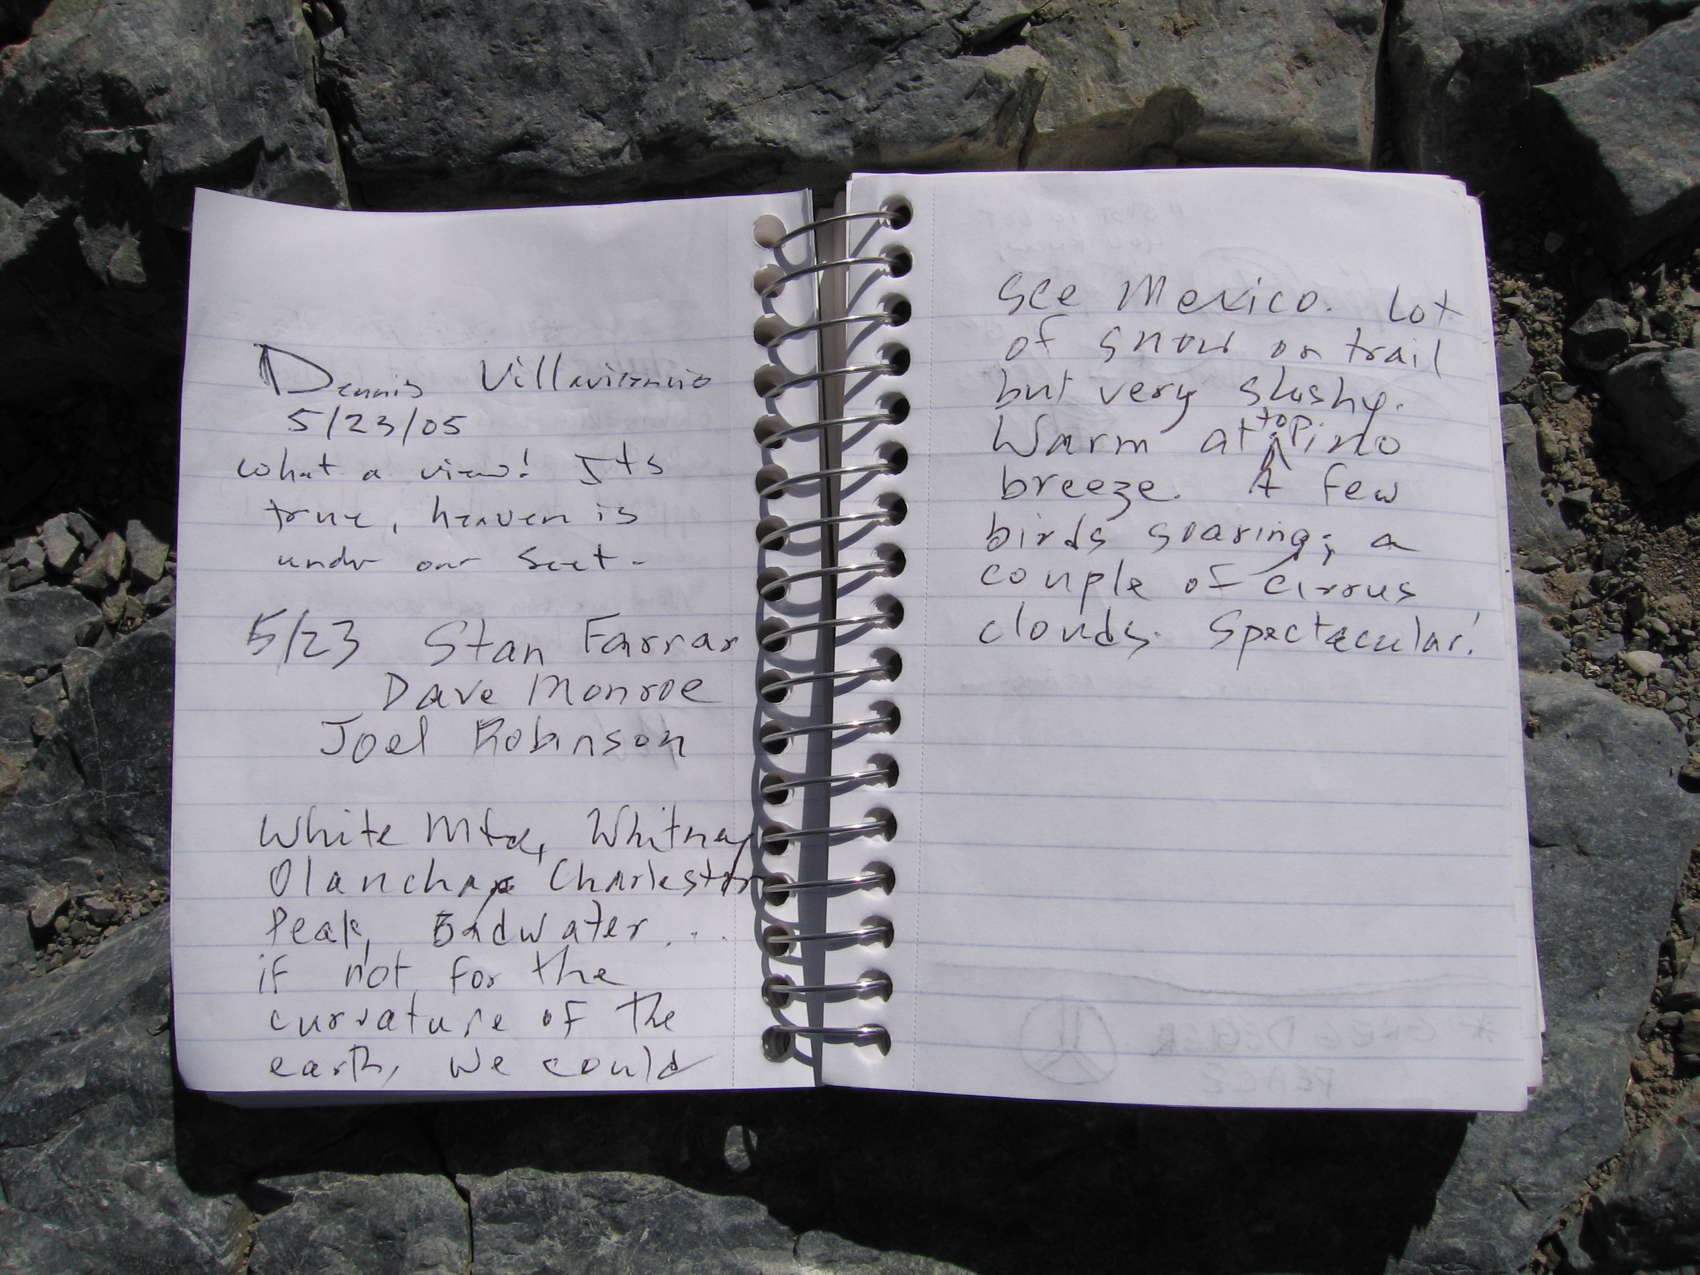 Dennis Villavicencio
5/23/05
what a view! Its
true, heaven is
under our feet.
5/23 Stan Farrar
Dave Monroe
Joel Robinson
White Mtn, Whitney
Olancha, Charleston
Peak, Badwater...
if not for the
curvature of the
earth, we could
see Mexico. Lot
of snow on trail
but very slushy.
Warm at top, no
breeze. A few
birds soaring; a
couple of cirrus
clouds. Spectacular!
* GREG DEGLER
PEACE